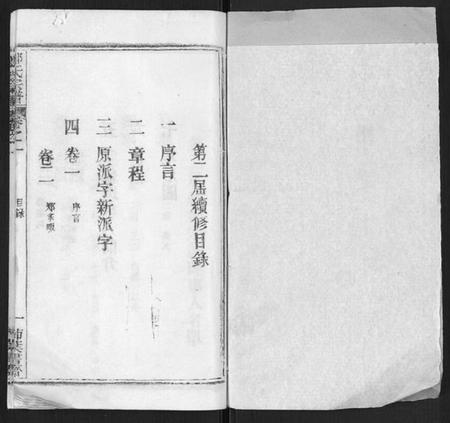 第二屆續修目錄
一 序言
二 章程
三 原派字新派字
四 卷一 序言
卷二
目錄
一